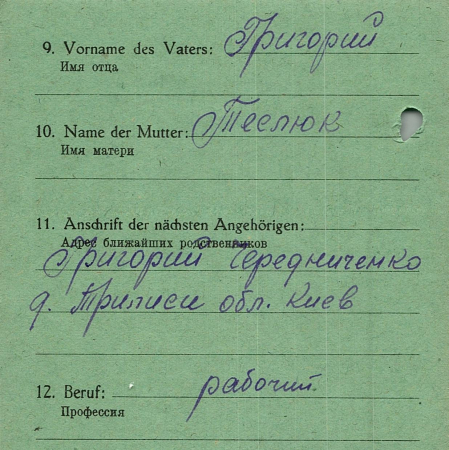 9. Vorname des Vaters: Григорий
Имя отца
10. Name der Mutter: Теслюк
Имя матери
11. Anschrift der nächsten Angehörigen:
Адрес ближайших родственников
Григорий Чередниченко
д. Трилиси обл. Киев
12. Beruf: рабочий
Профессия